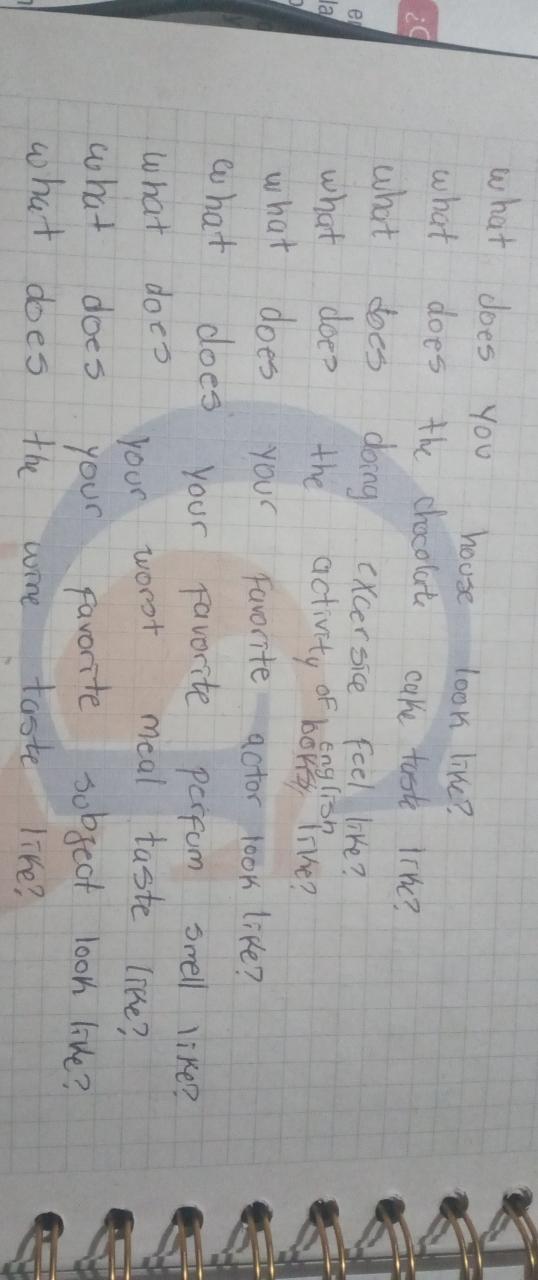 what does you house look like?
what does the chocolate cake taste like?
what does doing excersice feel like?
what does the activity of english books like?
what does your favorite actor look like?
what does your favorite perfum smell like?
what does your worst meal taste like?
what does your favorite subject look like?
what does the wine taste like?